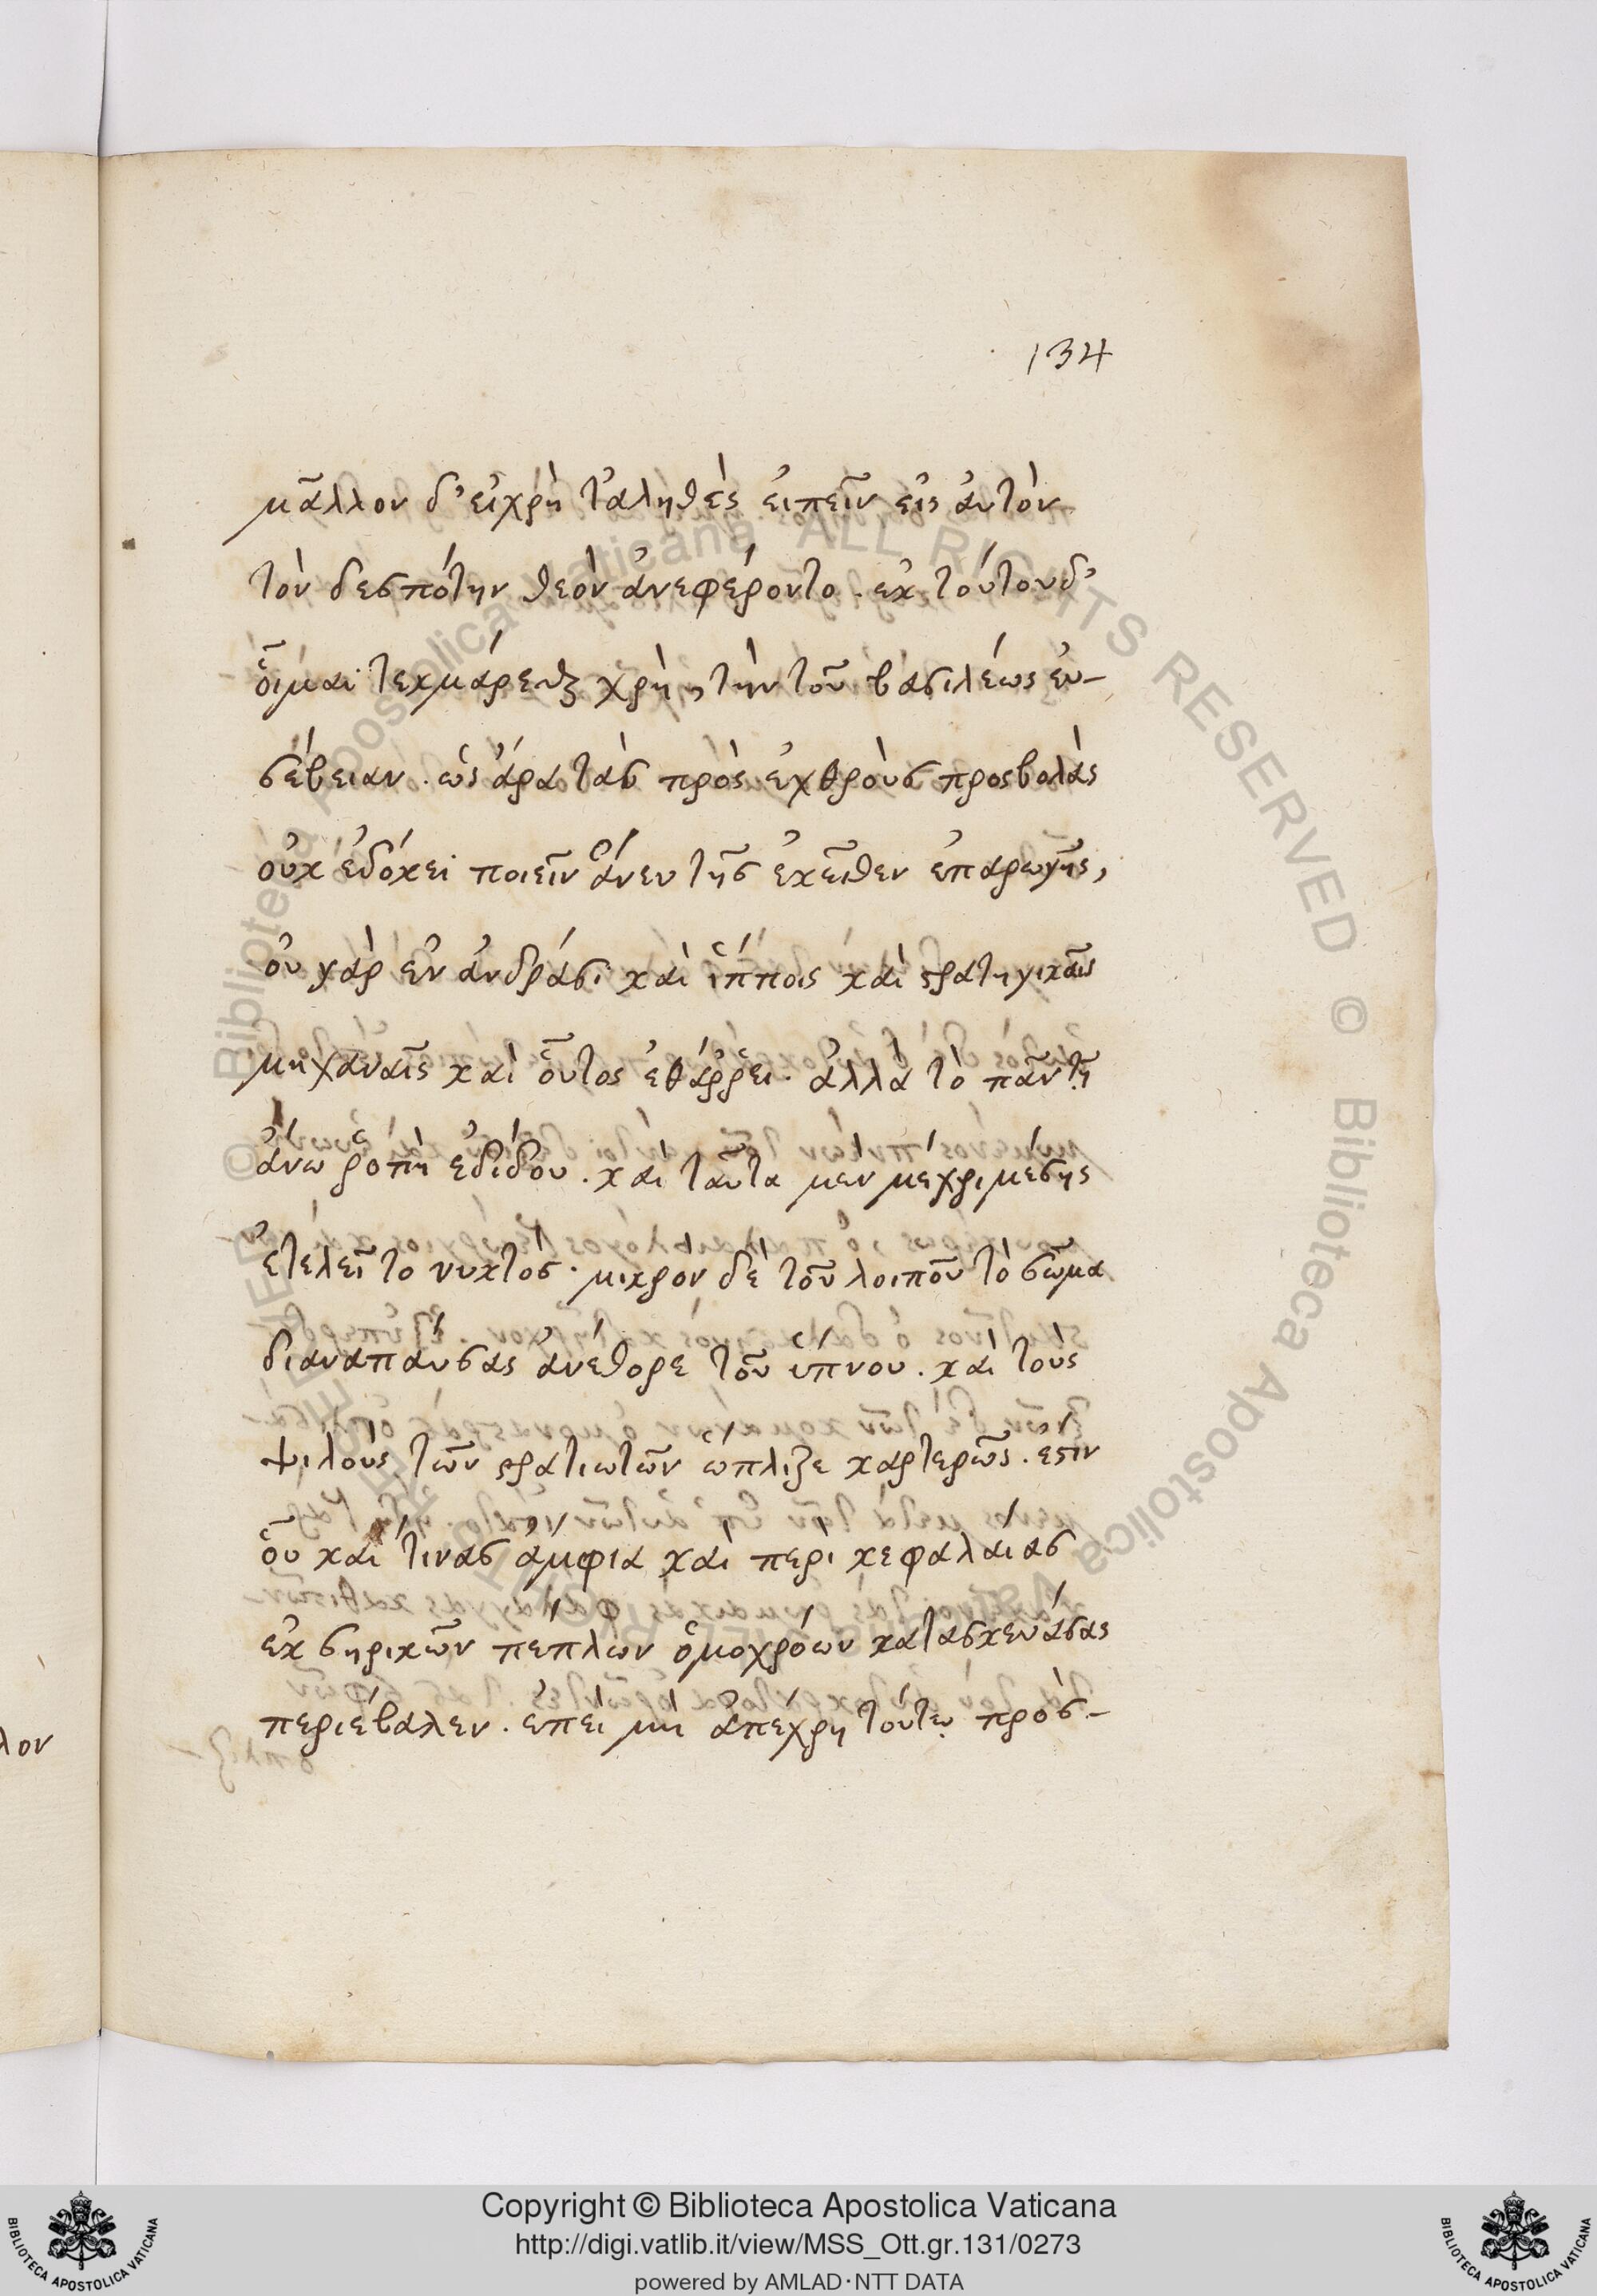 134
μᾶλλον δ' εἰ χρὴ τ' ἀληθὲς ἐιπεῖν εἰς ἀυτὸν
τὸν δεσπότην θεὸν ἀνεφέροντο. ἐκ τούτου δ'
ὅιμαι τεκμάρεσθαι χρὴ, τὴν τοῦ βασιλέως ἐυ-
σέβειαν. ὡς ἄρα τὰς πρὸς ἐχθροὺς προσβολὰς
οὐκ ἐδόκει ποιεῖν ἄνευ τῆς ἐκεῖθεν ἐπαρωγῆς,
ὀυ γὰρ ἐν ἀνδράσι καὶ ἵπποις καὶ στρατηγικαῖς
μηχαναῖς καὶ οὗτος ἐθάρρει. ἀλλὰ τὸ πᾶν τῆ
ἄνω ῥοπὴ ἐδίδου. καὶ ταῦτα μὲν μέχρι μέσης
ἐτελεῖτο νυκτὸς. μικρὸν δὲ τοῦ λοιποῦ τὸ σῶμα
διαναπαύσας ἀνέθορε τοῦ ὕπνου. καὶ τοὺς
ψιλοὺς τῶν στρατιωτῶν ὥπλιζε καρτερῶς. ἔστιν
οὗ καὶ τινὰς ἄμφια καὶ περικεφαλαίας
ἐκ σηρικῶν πέπλων ὁμοχρόων κατασκευάσας
περιέβαλεν. ἐπεὶ μὴ ἀπέχρη τούτῳ πρὸς-
λον
Copyright © Biblioteca Apostolica Vaticana
http://digi.vatlib.it/view/MSS_Ott.gr.131/0273
powered by AMLAD·NTT DATA
BIBLIOTECA APOSTOLICA VATICANA
BIBLIOTECA APOSTOLICA VATICANA
© Biblioteca Apostolica Vaticana ALL RIGHTS RESERVED © Biblioteca Apostolica Vaticana ALL RIGHTS RESERVED